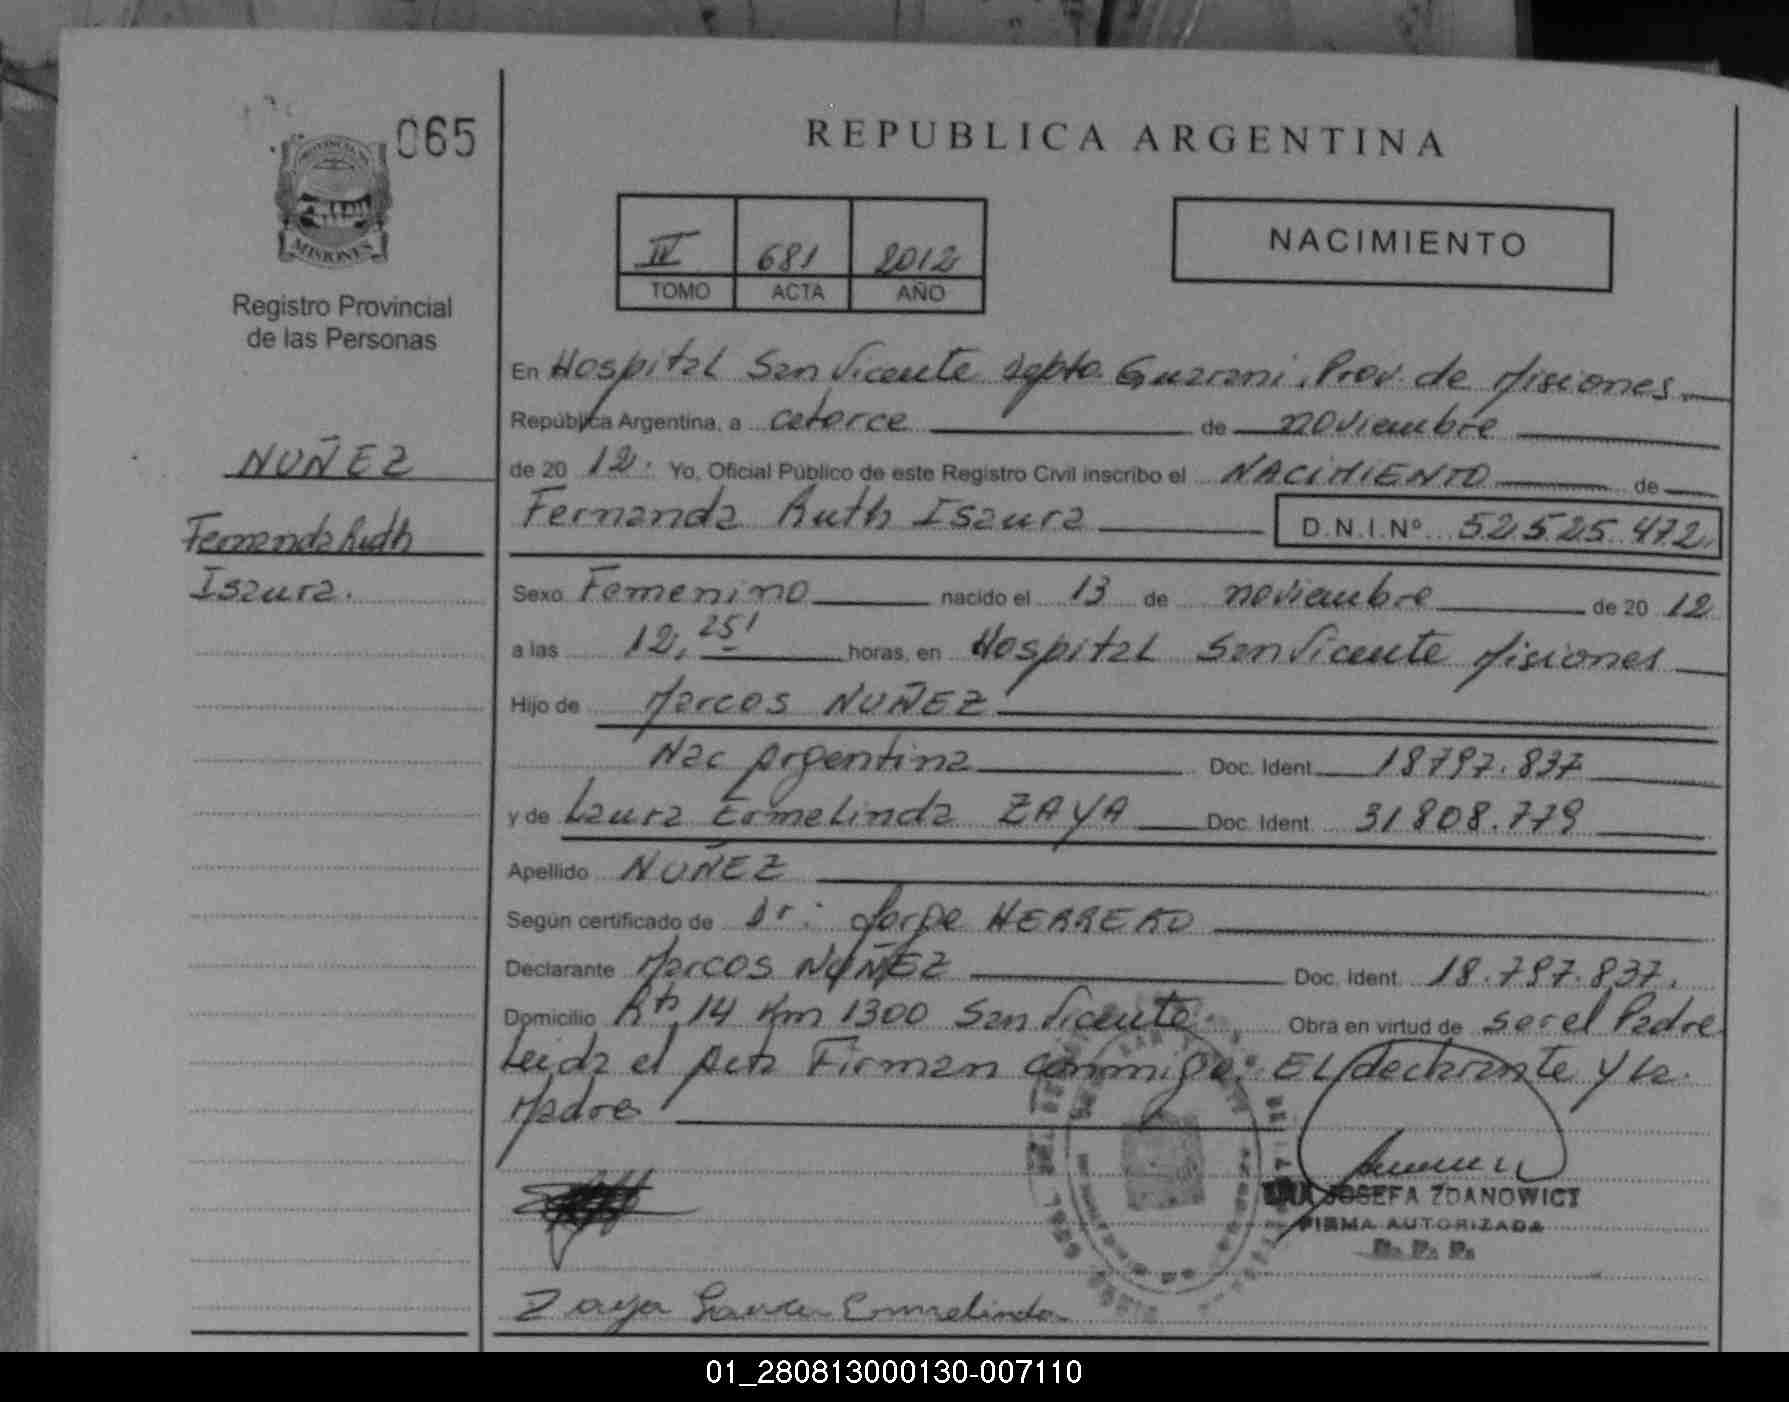 065
MISIONES
Registro Provincial
de las Personas
NUÑEZ
Fernanda Ruth
Isaura.
REPUBLICA ARGENTINA
IV 681 2012
TOMO ACTA AÑO
NACIMIENTO
En Hospital San Vicente depto. Guarani. Prov. de Misiones
República Argentina, a catorce de noviembre
de 20 12. Yo, Oficial Público de este Registro Civil inscribo el NACIMIENTO de
Fernanda Ruth Isaura D.N.I.Nº 52.525.472.
Sexo Femenino nacido el 13 de noviembre de 20 12
a las 12,25' horas, en Hospital San Vicente Misiones
Hijo de Marcos NUÑEZ
Nac Argentina Doc. Ident. 18797.837
y de Laura Ermelinda ZAYA Doc. Ident. 31808.779
Apellido NUÑEZ
Según certificado de Dr: Jorge HERRERO
Declarante Marcos NUÑEZ Doc. Ident. 18.797.837.
Domicilio Rta 14 Km 1300 San Vicente. Obra en virtud de ser el Padre
Leida el Acta Firman conmigo: EL declarante y la
Madre
JOSEFA ZDANOWICZ
FIRMA AUTORIZADA
R. P. P.
Zaya Laura Ermelinda
01_280813000130-007110